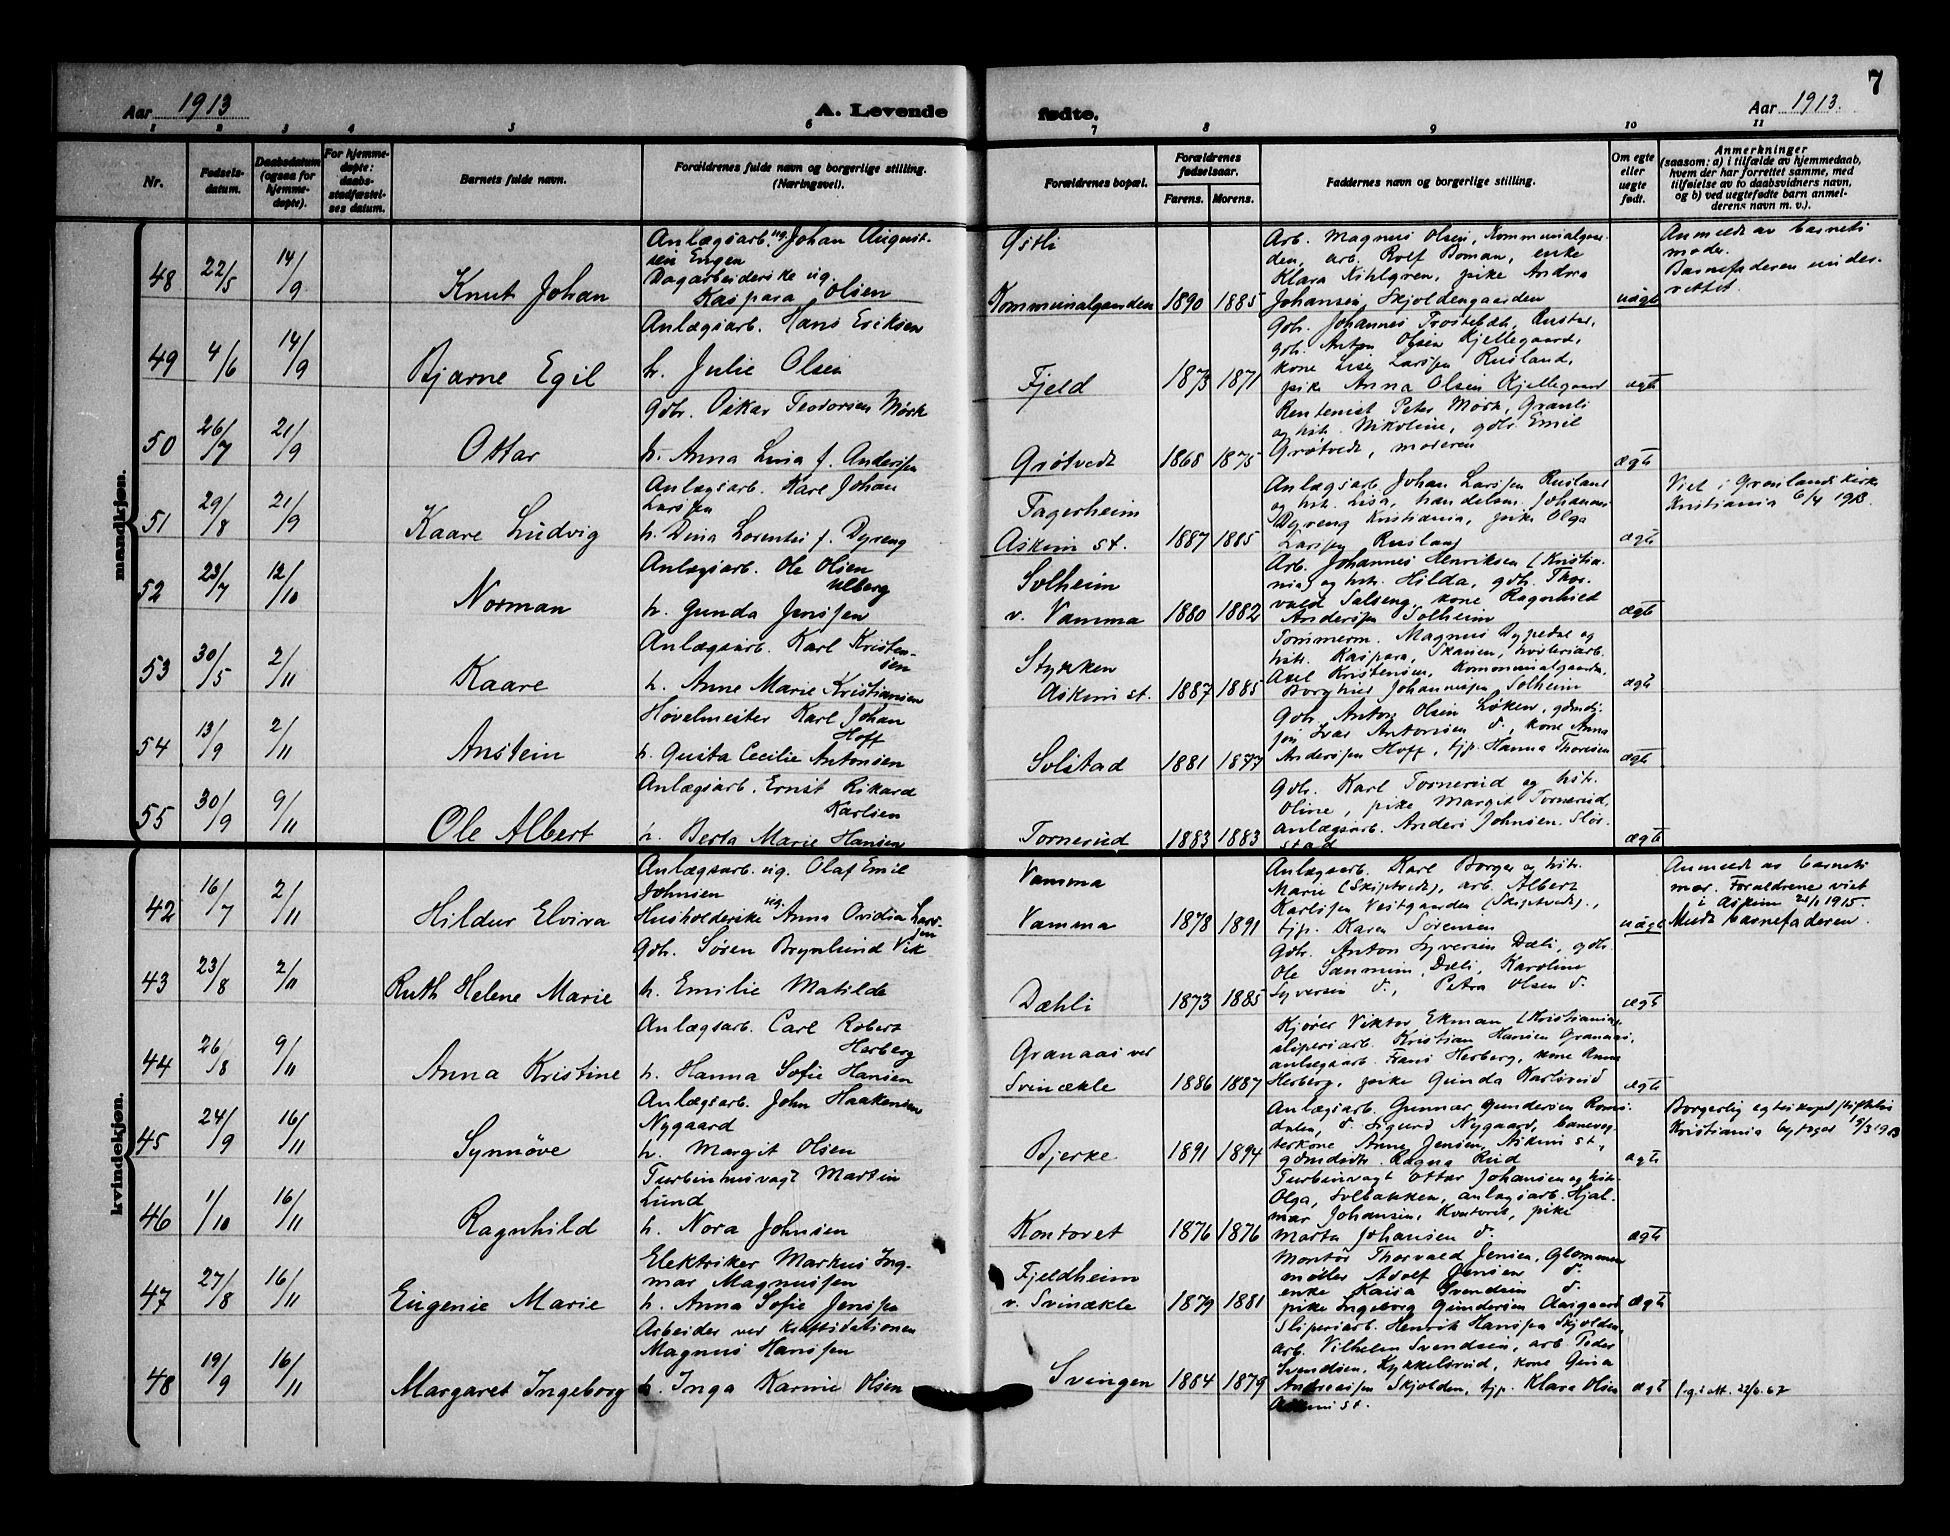 7
Aar 1913
A. Levende
fødte.
Aar 1913.
1 2 3 4 5 6 7 8 9 10 11
Nr.
Fødsels-
datum.
Daabsdatum
(ogsaa for
hjemme-
døpte).
For hjemme-
døpte:
daabs-
stadfæstel-
ses datum.
Barnets fulde navn.
Forældrenes fulde navn og borgerlige stilling.
(Næringsvei).
Forældrenes bopæl.
Forældrenes
fødselsaar.
Farens. Morens.
Faddernes navn og borgerlige stilling.
Om egte
eller
uegte
født.
Anmerkninger
(saasom: a) i tilfælde av hjemmedaab,
hvem der har forrettet samme, med
tilføielse av to daabsvidners navn,
og b) ved uegtefødte barn anmel-
derens navn m. v.).
mandkjøn.
48 22/5 14/9 Knut Johan
Anlægsarb. ug. Johan August-
sen Engen
Dagarbeiderske ug.
Kaspara Olsen
Østli
Kommunalgaarden 1890 1885
Arb. Magnus Olsen, Kommunalgaar-
den, arb. Rolf Boman, enke
Klara Kihlgren, pike Andrea
Johansen, Skjoldengaarden
uægte
Anmeldt av barnets
moder.
Barnefaderen under-
rettet.
49 4/6 14/9 Bjarne Egil
Anlægsarb. Hans Eriksen
h. Julie Olsen
Fjeld 1873 1871
Gdbr. Johannes Trostebdt, Rustad,
gdbr. Anton Olsen Kjellegaard,
kone Lise Larssen Rusland,
pike Anna Olsen Kjellegaard
ægte
50 26/7 21/9 Ottar
Gdbr. Oskar Teodorsen Mørk
h. Anna Lusa f. Anderssen
Grøtvedt 1868 1875
Rentenist Peter Mørk, Granli
og hstr. Nikoline, gdbr. Emil
Grøtvedt, moderen
ægte
51 29/8 21/9 Kaare Ludvig
Anlægsarb. Karl Johan
Larssen
h. Dina Lorentse f. Dyreng
Fagerheim
Askim st. 1887 1885
Anlægsarb Johan Larssen Rusland
og hst. Lisa, handelsm. Johannes
Dyreng Kristiania, pike Olga
Larssen Rusland
ægte
Viet i Grønlands kirke
Kristiania 6/4 1913.
52 23/7 12/10 Norman
Anlægsarb. Ole Olsen
Ulberg
h. Gunda Jenssen
Solheim
v. Vamma 1880 1882
Arb. Johannes Henriksen (Kristia-
nia) og hstr. Hilda, gdbr. Thor-
vald Salseng, kone Ragnhild
Anderssen Solheim
ægte
53 30/5 2/11 Kaare
Anlægsarb. Karl Kristen-
sen
h. Anne Marie Kristiansen
Stykken
Askim st. 1887 1885
Tømmerm. Magnus Dypedal og
hstr. Kaspara, Skansen, sliberiarb.
Axel Kristensen, Kommunalgaarden,
Borghild Johannessen Solheim
ægte
54 13/9 2/11 Anstein
Høvelmester Karl Johan
Hoff
h. Gusta Cecilie Antonsen
Solstad 1881 1877
Gdbr. Anton Olsen Løken, gdmds.
søn Ivar Antonsen d., kone Anna
Anderssen Hoff, tjp. Hanna Thoresen
ægte
55 30/9 9/11 Ole Albert
Anlægsarb. Ernst Rikard
Karlsen
h. Berta Marie Hansen
Tornerud 1883 1883
Gdbr. Karl Tornerud og hstr.
Oline, pike Margit Tornerud,
anlægsarb. Anders Johnsen Slor-
stad
ægte
kvindekjøn.
42 16/7 2/11 Hildur Elvira
Anlægsarb. ug. Olaf Emil
Johnsen
Husholderske ug. Anna Ovidia Lars-
sen
Vamma
Vamma 1878 1891
Anlægsarb. Karl Borge og hstr.
Marie (Skiptvedt), arb. Albert
Karlssen Vestgaarden (Skiptvedt),
tjp. Karen Sørensen
uægte
Anmeldt av barnets
mor. Forældrene viet
i Askim 1915.
Meldt barnefaderen.
43 23/8 2/11 Ruth Helene Marie
Gdbr. Søren Brynlund Vik
h. Emilie Matilde
Dæhli 1873 1885
Gdbr. Anton Syversen Dæli, gdbr.
Ole Sanmim, Dæli, Karoline
Syversen d., Petra Olsen d.
ægte
44 26/8 9/11 Anna Kristine
Anlægsarb. Carl Robert
Herberg
h. Hanna Sofie Hansen
Granaas ved
Svinekle 1886 1887
Kjører Viktor Ekman (Kristiania),
sliperiarb. Kristian Hansen Granaas,
anlægsarb. Frans Herberg, kone Anna
Herberg, pike Gunda Karlsrud
ægte
45 24/9 16/11 Synnøve
Anlægsarb. John Haakensen
Nygaard
h. Margit Olsen
Bjerke 1891 1894
Anlægsarb. Gunnar Gundersen Roms-
dalen, d. Sigurd Nygaard, banevog-
terkone Anne Jensen, Askim st.,
gdmdsdtr. Ragna Rud
ægte
Borgerlig egteskapsstiftelse
Kristiania byfoged 13/3 1913
46 1/10 16/11 Ragnhild
Turbinhusvagt Martin
Lund
h. Nora Johnsen
Kontoret 1876 1876
Turbinvagt Ottar Johansen og hstr.
Olga, Solbakken, anlægsarb. Hjal-
mar Johansen, Kontoret, pike
Marta Johansen d.
ægte
47 27/8 16/11 Eugenie Marie
Elektriker Markus Ing-
mar Magnussen
h. Anna Sofie Jenssen
Fjeldheim
v. Svinekle 1879 1881
Montør Thorvald Jensen, Glommen
møller Adolf Jensen d.
enke Kaisa Svendsen d.
pike Ingeborg Gundersen Aasgaard
ægte
48 19/9 16/11 Margaret Ingeborg
Arbeider ved kraftstationen
Magnus Hanssen
h. Inga Karine Olsen
Svingen 1884 1879
Sliperiarb. Henrik Hanssen Skjolden,
arb. Vilhelm Svendsen, arb Peder
Svendsen, Kykkelsrud, kone Gusa
Andreassen Skjolden, tjp. Klara Olsen
Askim st.
ægte
f.g. att. 22/6.62